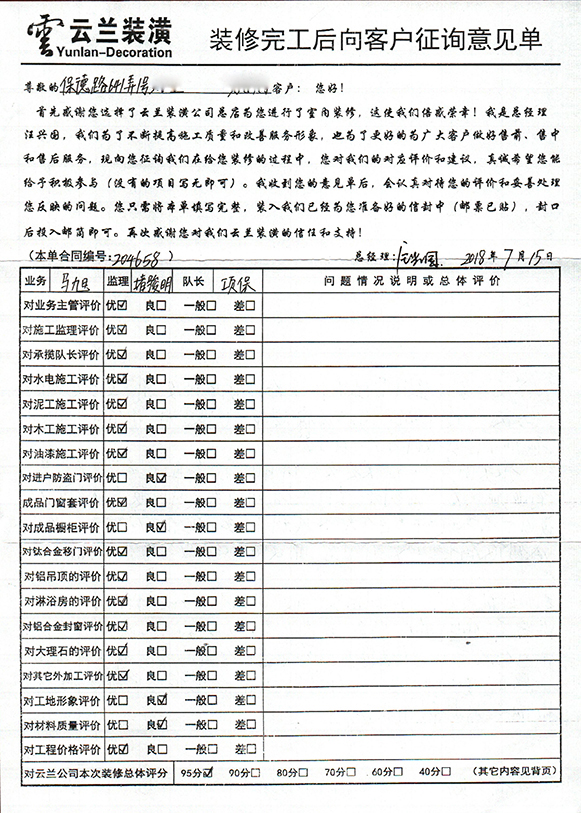 雲 云兰装潢
Yunlan-Decoration
装修完工后向客户征询意见单
尊敬的保德路641弄 客户： 您好！
首先感谢您选择了云兰装潢公司总店为您进行了室内装修，这使我们倍感荣幸！我是总经理
汪兴国，我们为了不断提高施工质量和改善服务形象，也为了更好的为广大客户做好售前、售中
和售后服务，现向您征询我们在给您装修的过程中，您对我们的对应评价和建议，真诚希望您能
给予积极参与（没有的项目写无即可）。我收到您的意见单后，会认真对待您的评价和妥善处理
您反映的问题。您只需将本单填写完整，装入我们已经为您准备好的信封中（邮票已贴），封口
后投入邮筒即可。再次感谢您对我们云兰装潢的信任和支持！
（本单合同编号:204658 ） 总经理: 2018年7月15日
业务 监理 队长 项保 问题情况说明或总体评价
对业务主管评价 优☑ 良☐ 一般☐ 差☐
对施工监理评价 优☑ 良☐ 一般☐ 差☐
对承揽队长评价 优☑ 良☐ 一般☐ 差☐
对水电施工评价 优☑ 良☐ 一般☐ 差☐
对泥工施工评价 优☑ 良☐ 一般☐ 差☐
对木工施工评价 优☑ 良☐ 一般☐ 差☐
对油漆施工评价 优☑ 良☐ 一般☐ 差☐
对进户防盗门评价 优☐ 良☑ 一般☐ 差☐
成品门窗套评价 优☑ 良☐ 一般☐ 差☐
对成品橱柜评价 优☐ 良☑ 一般☐ 差☐
对钛合金移门评价 优☑ 良☐ 一般☐ 差☐
对铝吊顶的评价 优☑ 良☐ 一般☐ 差☐
对淋浴房的评价 优☑ 良☐ 一般☐ 差☐
对铝合金封窗评价 优☑ 良☐ 一般☐ 差☐
对大理石的评价 优☑ 良☐ 一般☐ 差☐
对其它外加工评价 优☑ 良☐ 一般☐ 差☐
对工地形象评价 优☐ 良☑ 一般☐ 差☐
对材料质量评价 优☐ 良☑ 一般☐ 差☐
对工程价格评价 优☑ 良☐ 一般☐ 差☐
对云兰公司本次装修总体评分 95分☑ 90分☐ 80分☐ 70分☐ 60分☐ 40分☐ （其它内容见背页）